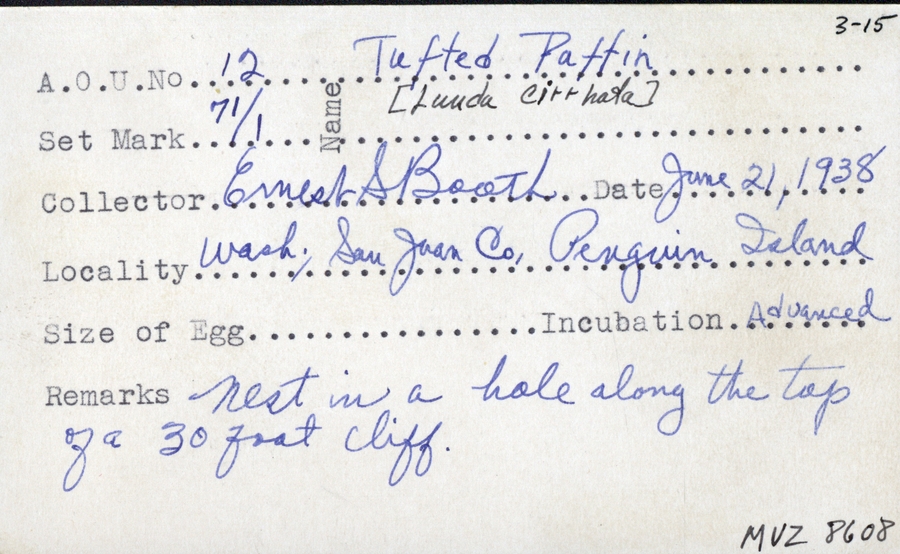 3-15
A.O.U.No. 12 Name Tufted Puffin
[Lunda cirrhata]
Set Mark 71/1
Collector Ernest S Booth Date June 21, 1938
Locality Wash; San Juan Co, Penguin Island
Size of Egg Incubation Advanced
Remarks Nest in a hole along the top
of a 30 foot cliff.
MVZ 8608